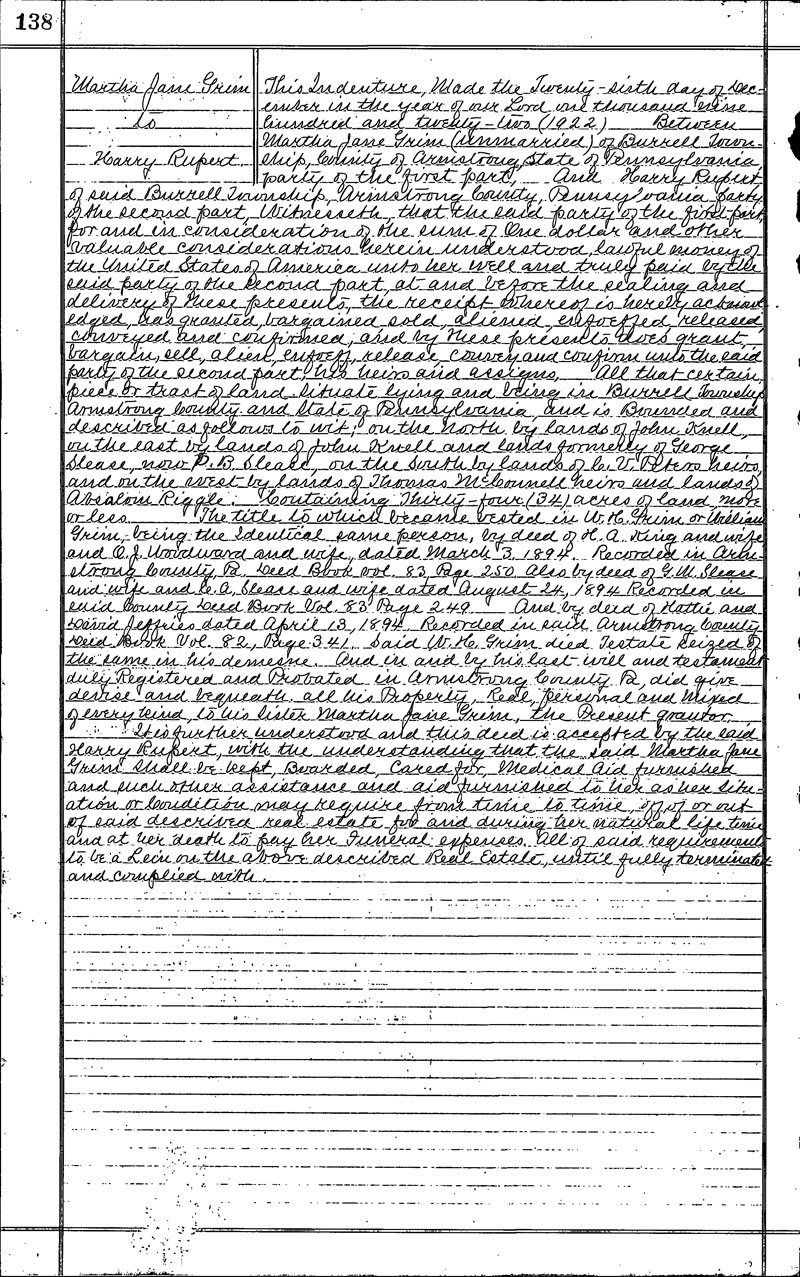 138
Martha Jane Grim
to
Harry Rupert
This Indenture, Made the Twenty-sixth day of Dec-
ember in the year of our Lord one thousand nine
hundred and twenty-two (1922) Between
Martha Jane Grim (unmarried) of Burrell Town-
ship, County of Armstrong, State of Pennsylvania,
party of the first part, And Harry Rupert
of said Burrell Township, Armstrong County, Pennsylvania party
of the second part, Witnesseth, that the said party of the first part,
for and in consideration of the sum of One dollar and other
valuable considerations herein understood, lawful money of
the United States of America unto her well and truly paid by the
said party of the second part, at and before the sealing and
delivery of these presents, the receipt whereof is hereby acknowl-
edged, has granted, bargained sold, aliened, enfoeffed, released,
conveyed and confirmed, and by these presents does grant,
bargain, sell, alien, enfoeff, release convey and confirm unto the said
party of the second part, his heirs and assigns, All that certain,
piece or tract of land situate lying and being in Burrell Township
Armstrong County and State of Pennsylvania, and is Bounded and
described as follows to wit; on the North by lands of John Knell,
on the east by lands of John Knell and lands formerly of George
Slease, now P. B. Slease, on the South by lands of C. V. Peters heirs,
and on the west by lands of Thomas McConnell heirs and lands of
Absalom Riggle. Containing Thirty-four (34) acres of land, more
or less. The title to which became vested in W. H. Grim or William
Grim, being the Identical same person, by deed of H. A. King and wife
and C. J. Woodward and wife, dated March 3, 1894. Recorded in Arm-
strong County, Pa. Deed Book vol. 83 Page 250. Also by deed of G. W. Slease
and wife and C. A. Slease and wife dated August 24, 1894 Recorded in
said County Deed Book Vol. 83 Page 249. And by deed of Hattie and
David Jeffries dated April 13, 1894. Recorded in said Armstrong County
Deed Book Vol. 82, Page 341. Said W. H. Grim died Testate Seized of
the same in his demesne. And in and by his last will and testament
duly Registered and Probated in Armstrong County Pa, did give
devise and bequeath all his Property, Real, personal and Mixed
of every kind, to his sister Martha Jane Grim, the Present grantor.
It is further understood and this deed is accepted by the said
Harry Rupert, with the understanding that the said Martha Jane
Grim shall be kept, Boarded, Cared for, Medical Aid furnished
and such other assistance and aid furnished to her as her situ-
ation or Condition may require from time to time of of or out
of said described real estate, for and during her natural life time
and at her death to pay her Funeral expenses. All of said requirements
to be a Lein on the above described Real Estate, until fully terminated
and complied with.